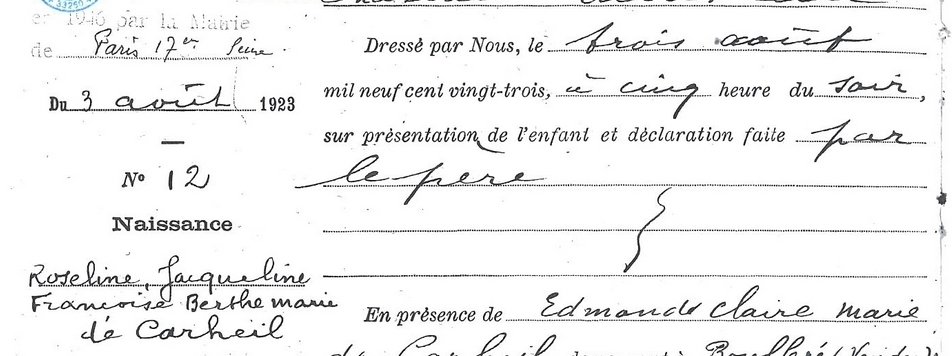 en 1946 par la Mairie
de Paris 17er Seine
Du 3 août 1923
Nº 12
Naissance
Roseline, Jacqueline
Francoise Berthe marie
de Carheil
Dressé par Nous, le trois août
mil neuf cent vingt-trois, à cinq heure du soir,
sur présentation de l'enfant et déclaration faite par
le père
En présence de Edmonde Claire marie
de Carheil